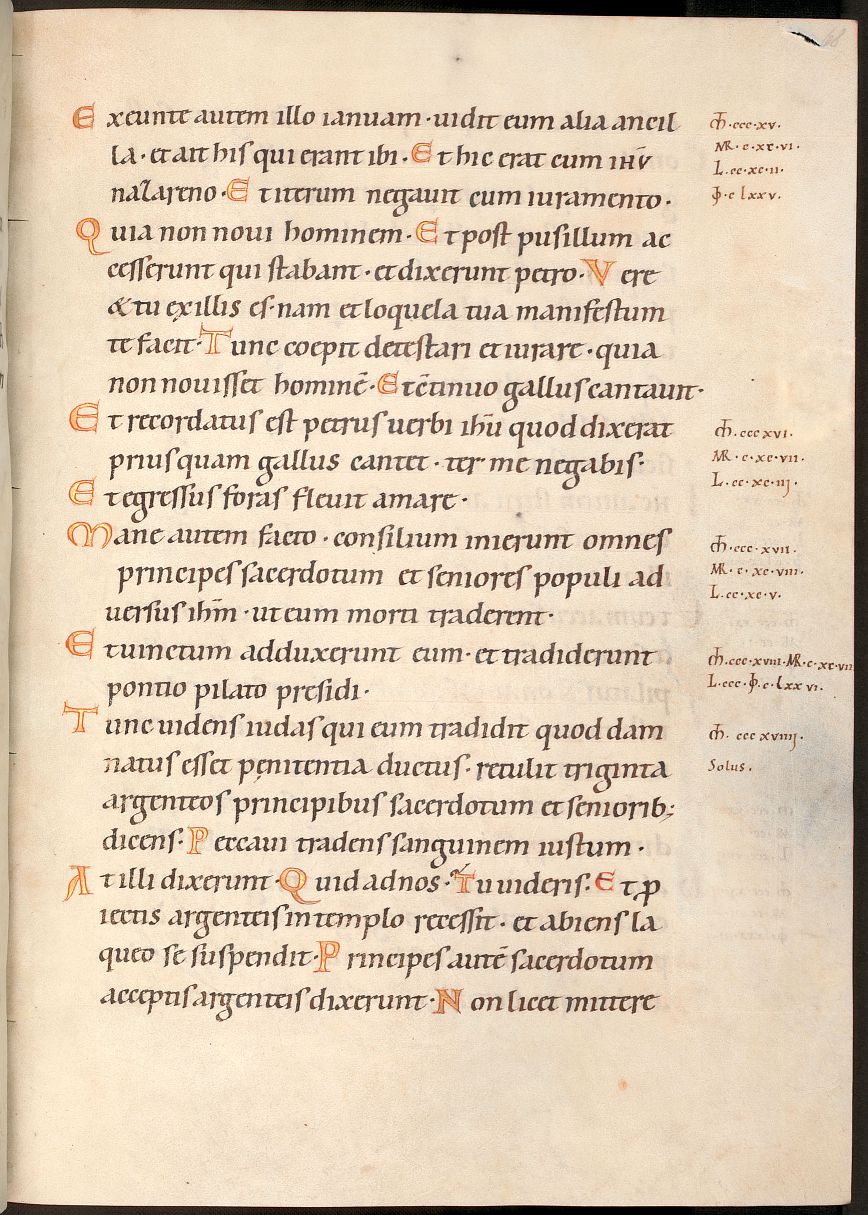 Exeunte autem illo ianuam · uidit eum alia ancil
la · et ait his qui erant ibi · Et hic erat cum ihū
nazareno · Et iterum negauit cum iuramento ·
Quia non noui hominem · Et post pusillum ac
cesserunt qui stabant · et dixerunt petro · Vere
& tu ex illis es · nam et loquela tua manifestum
te facit · Tunc coepit detestari et iurare · quia
non nouisset hominē · Et c̄tinuo gallus cantauit ·
Et recordatus est petrus uerbi ihū quod dixerat
priusquam gallus cantet · ter me negabis ·
Et egressus foras fleuit amare ·
Mane autem facto · consilium inierunt omnes
principes sacerdotum et seniores populi ad
uersus ihm̄ · ut eum morti traderent ·
Et uinctum adduxerunt eum · et tradiderunt
pontio pilato presidi ·
Tunc uidens iudas qui eum tradidit quod dam
natus esset penitentia ductus · retulit triginta
argenteos principibus sacerdotum et seniorib;
dicens · Peccaui tradens sanguinem iustum ·
At illi dixerunt · Quid ad nos · Tu uideris · Et ꝓ
iectis argenteis in templo recessit · et abiens la
queo se suspendit · Principes autē sacerdotum
acceptis argenteis dixerunt · Non licet mittere
m̄ · ccc · xv ·
MR · c · xc · vi ·
L · cc · xc · ii ·
ιο̄ · c lxxv ·
m̄ · ccc xvi ·
MR · c · xc · vii ·
L · cc · xc · iij ·
m̄ · ccc · xvii ·
MR · c · xc · viii ·
L · cc · xc · v ·
m̄ · ccc · xviii · MR · c · xc · viiii
L · ccc · ιο̄ · c · lxxvi ·
m̄ · ccc xviiij ·
Solus ·